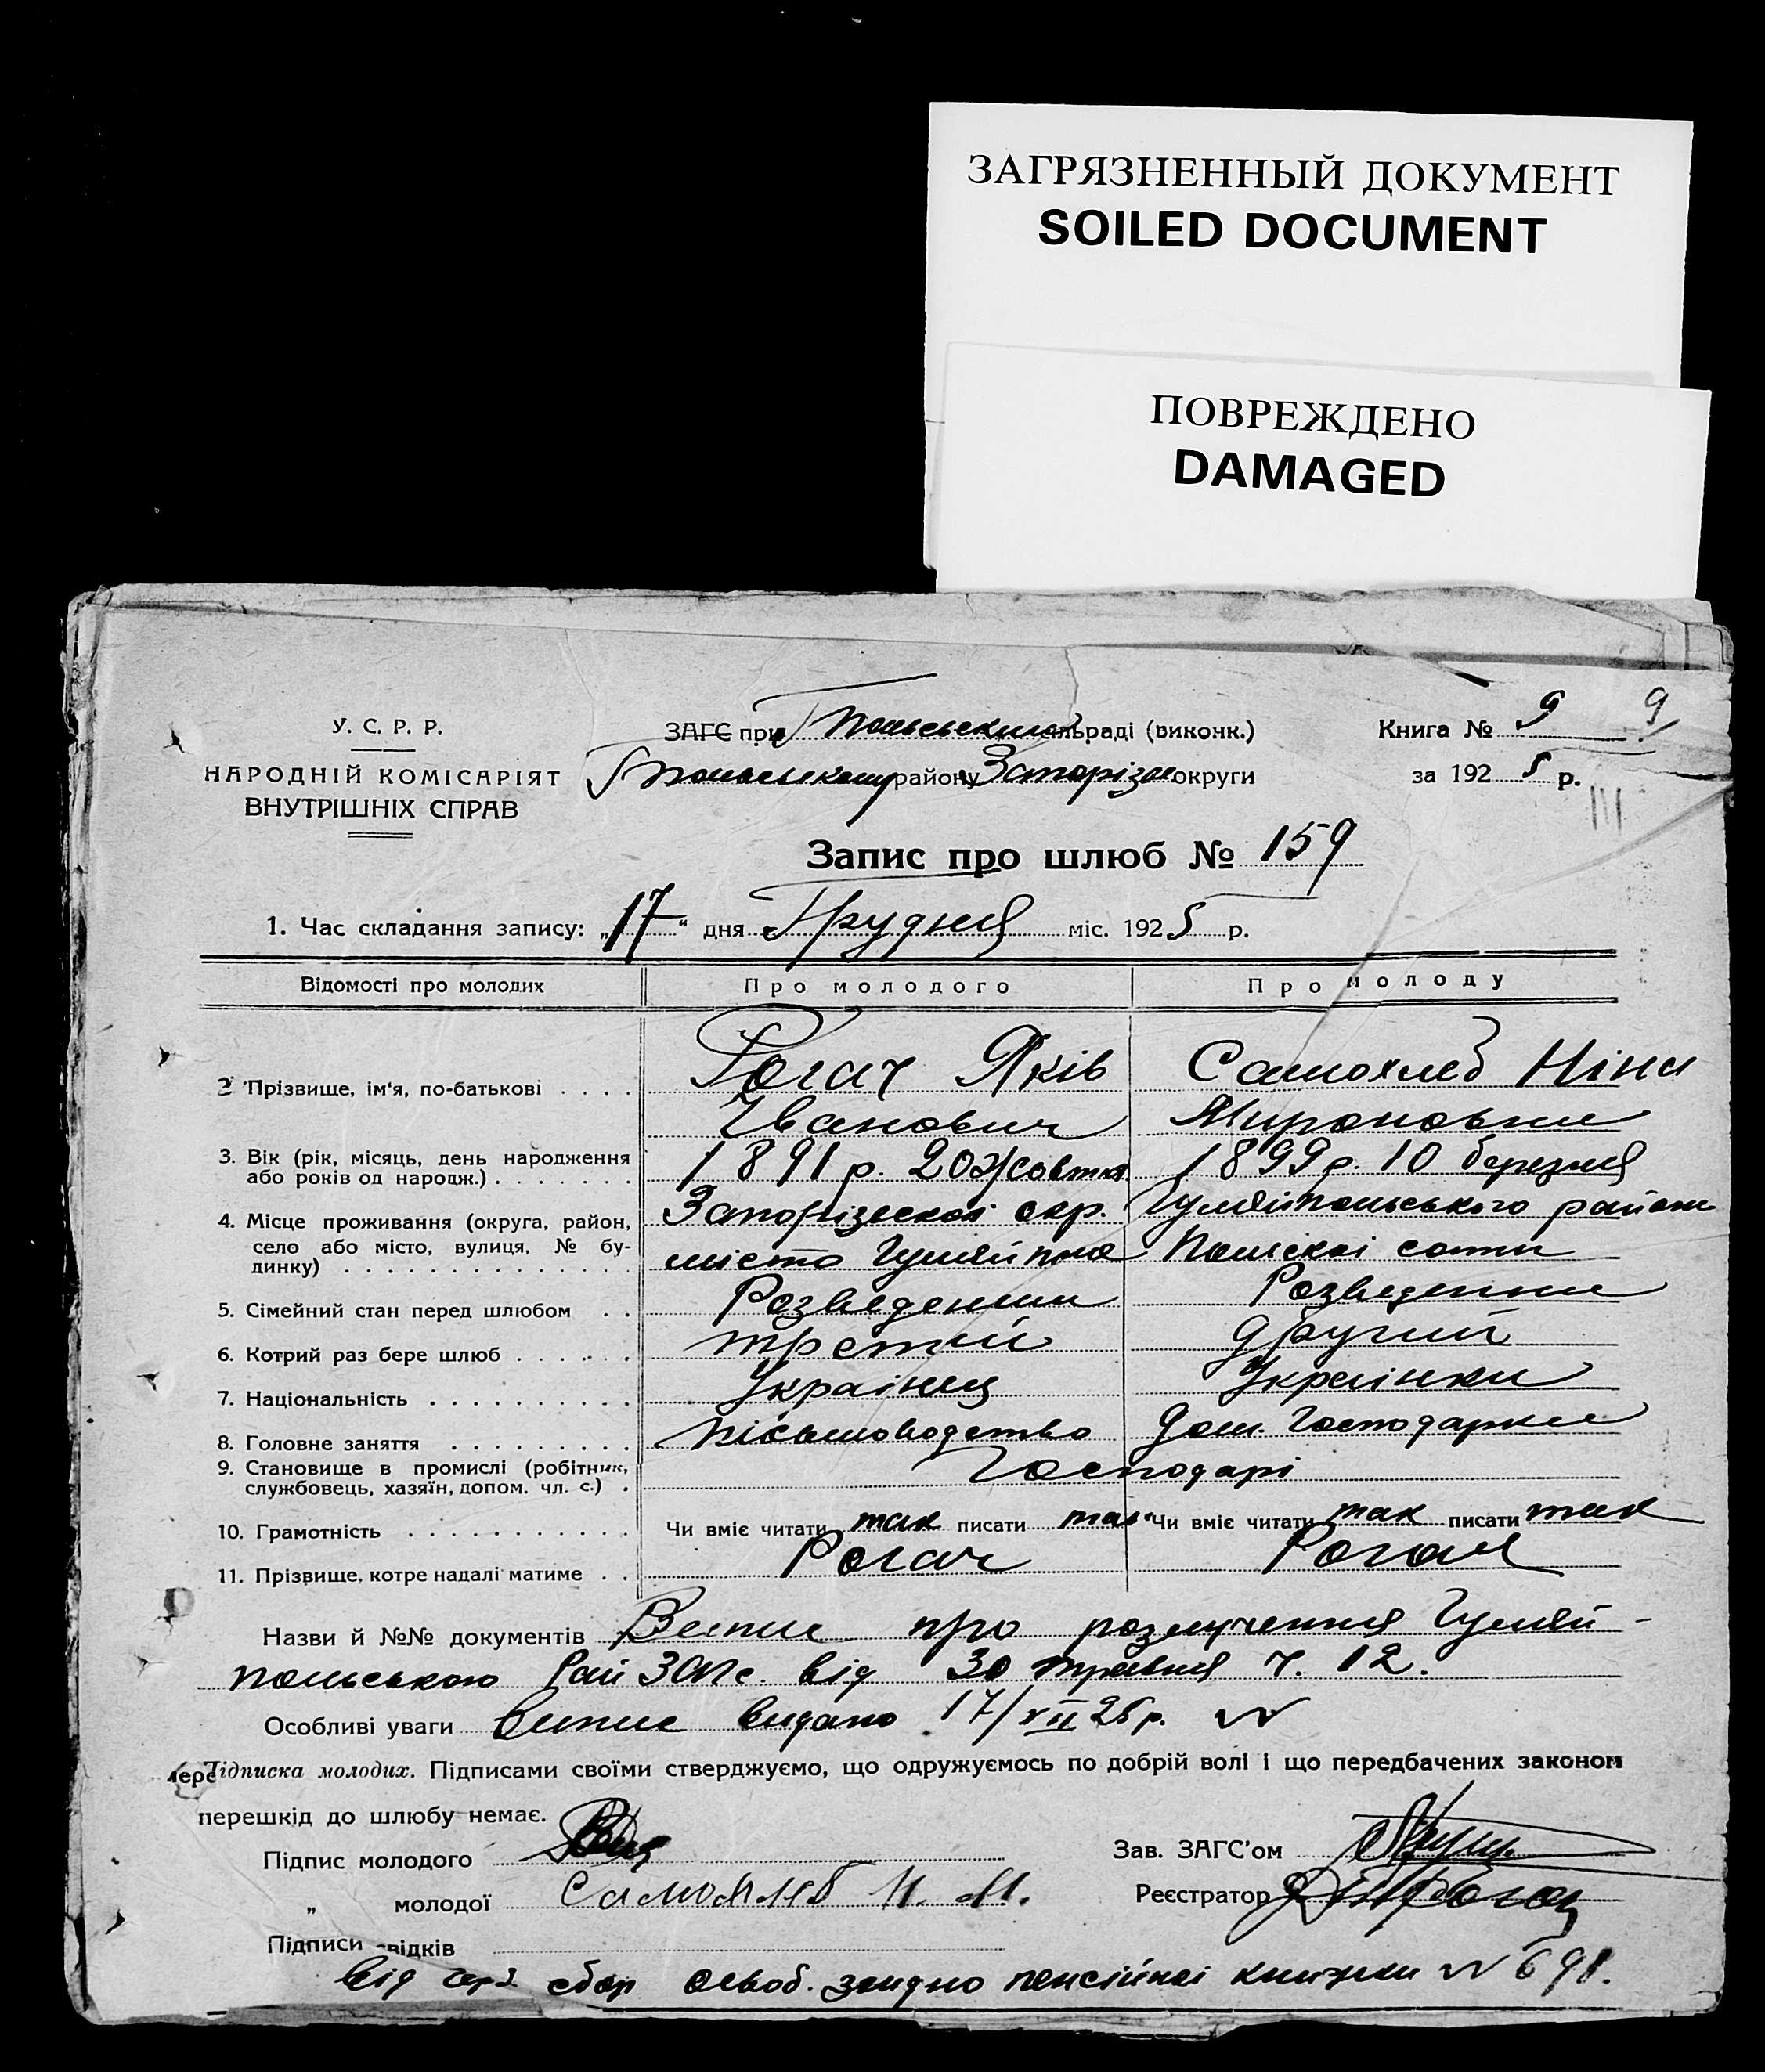 ЗАГРЯЗНЕННЫЙ ДОКУМЕНТ
SOILED DOCUMENT
ПОВРЕЖДЕНО
DAMAGED
У. С. Р. Р.
НАРОДНІЙ КОМІСАРІЯТ
ВНУТРІШНІХ СПРАВ
ЗАГС при Г Польському раді (виконк.)
Г Польському району Запорізьк округи
Книга № 9 9
за 192 5 р.
Запис про шлюб № 159
1. Час складання запису: „17“ дня Грудня міс. 1925 р.
Відомості про молодих Про молодого Про молоду
2 Прізвище, ім'я, по-батькові Рогач Яків Самохлеб Ніна
Іванович Мироновна
3. Вік (рік, місяць, день народження 1891 р. 20 Жовтня 1899 р. 10 березня
або років од народж.)
4. Місце проживання (округа, район, Запорізської окр. Гуляйпольського району
село або місто, вулиця, № бу- місто Гуляйполе Польскої сотни
динку)
5. Сімейний стан перед шлюбом Розведений Розведенна
6. Котрий раз бере шлюб третій другий
7. Національність Українец Українка
8. Головне заняття письмоводство Дом. Господарка
9. Становище в промислі (робітник, Господарі
службовець, хазяїн, допом. чл. с.)
10. Грамотність Чи вміє читати так писати так Чи вміє читати так писати так
11. Прізвище, котре надалі матиме Рогач Рогач
Назви й №№ документів Випис про розлучення Гуляй-
польською Рай ЗАГС. від 30 травня ч. 12.
Особливі уваги Випис видано 17/XII 25 р. №
Підписка молодих. Підписами своїми стверджуємо, що одружуємось по добрій волі і що передбачених законом
перешкід до шлюбу немає.
Підпис молодого
Зав. ЗАГС'ом
„ молодої Самохлеб Н. М.
Реєстратор
Підписи свідків
від герб сбор освоб. згидно пенсійної книжки № 698.